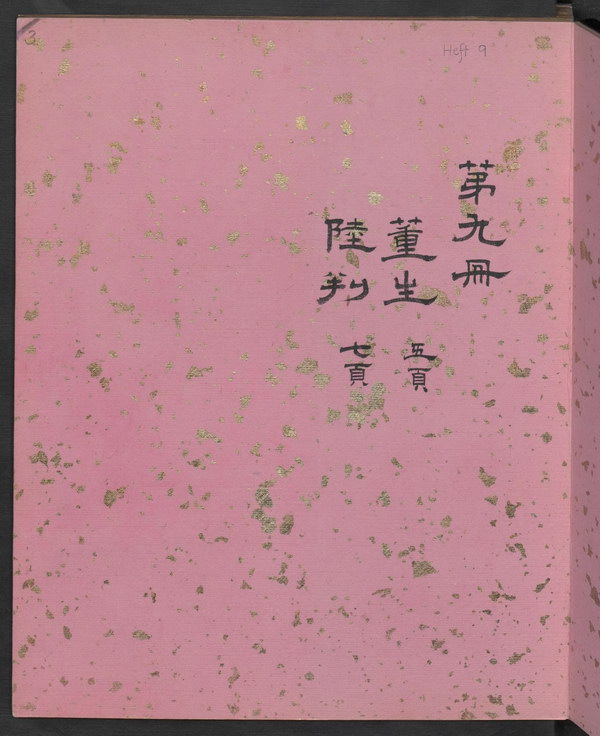 3
Heft 9
第九冊
董生 五頁
陸判 七頁